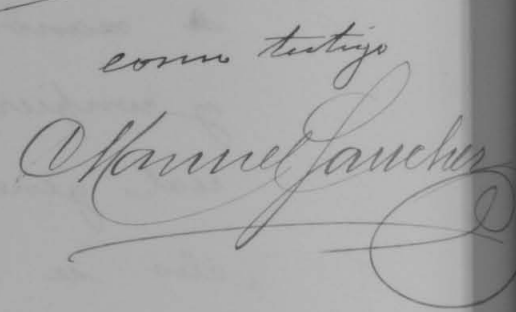 como testigo
Manuel Sanchez